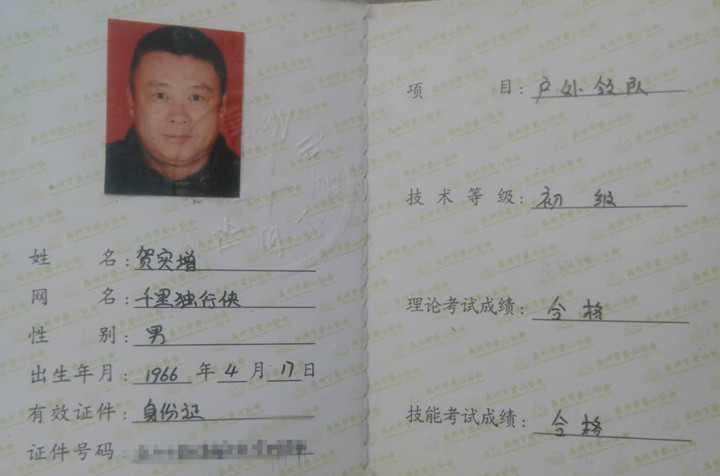 姓 名:贺实增
网 名:千里独行侠
性 别:男
出生年月:1966年4月17日
有效证件:身份证
证件号码:
项 目:户外领队
技术等级:初 级
理论考试成绩:合格
技能考试成绩:合格